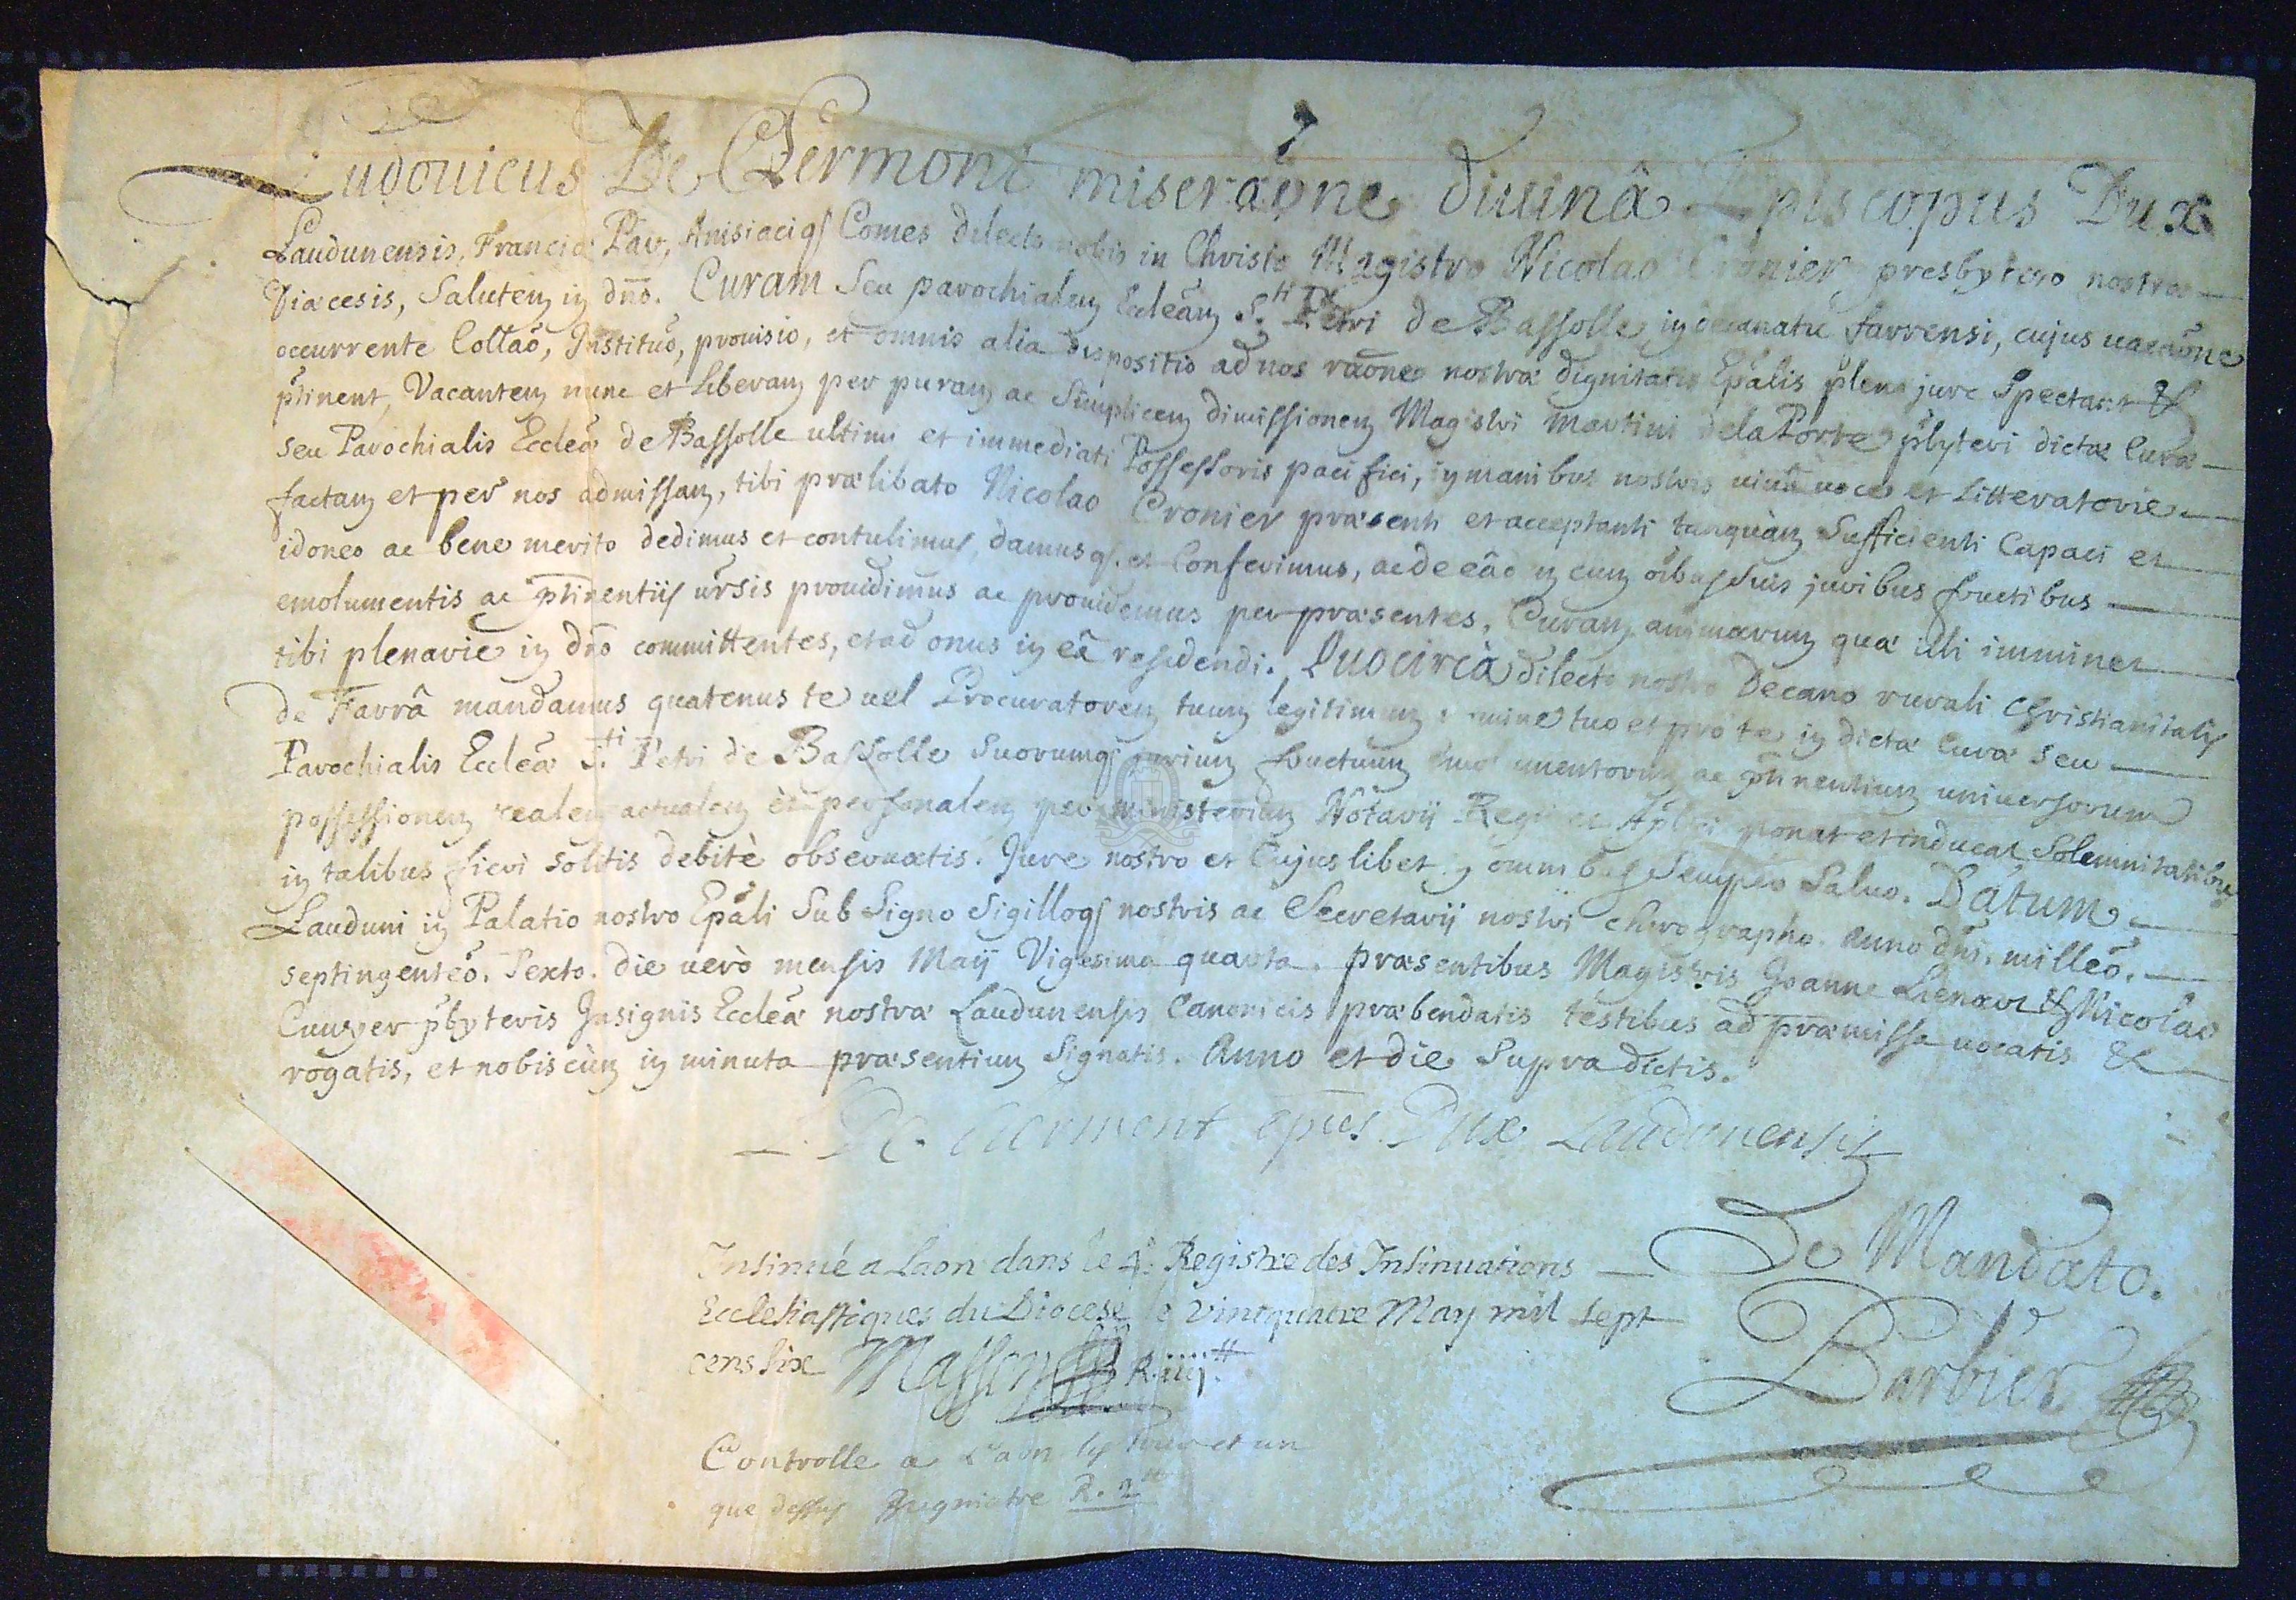 Ludouicus De Clermont miseraõne diuinâ Episcopus Dux
Laudunensis, Franciæ Par, Anisiaciq; Comes dilecto nobis in Christo Magistro Nicolao Cronier presbytero nostræ
Diæcesis, Salutem in dño. Curam Seu parochialem Eccleam S.ti Petri de Bassolle in decanatu farrensi, cujus uacaõne
occurrente Collaõ, Institũo, prouisio, et omnis alia dispositio ad nos raõne nostræ dignitatis Epãlis pleno jure Spectant &
ptinent, Vacantem nunc et Liberam per puram ac Simplicem dimissionem Magistri Martini de la Porte pbyteri dictæ Curæ
seu Parochialis Ecclеæ de Bassolle ultimi et immediati Possessoris pacifici, in manibus nostris uiuâ uoce et Litteratorie
factam et per nos admissam, tibi prælibato Nicolao Cronier præsenti et acceptanti tanquàm Sufficienti Capaci et
idoneo ac bene merito dedimus et contulimus, damusq; et Conferimus, ac de eâ in cum oĩbus Suis juribus fructibus
emolumentis ac ptinentiis ũrsis prouidimus ac prouidemus per præsentes, Curam animarum quæ illi imminet
tibi plenarie in dño committentes, et ad onus in eâ residendi. Quocircà dilecto nostro Decano rurali Christianitatis
de Farrâ mandamus quatenus te uel Procuratorem tuum legitimum nomine tuo et pro te in dictæ Curæ seu
Parochialis Ecclеæ S.ti Petri de Bassolle Suorumq; jurium fructuum emolumentorum ac ptinentium uniuersorum
possessionem realem actualem et personalem per ministerium Notarij Regij et Aplici ponat et inducat, Solemnitatibus
in talibus fieri solitis debitè obseruatis. Jure nostro et Cujuslibet in omnibus Semper Saluo. Datum
Lauduni in Palatio nostro Epãli Sub Signo Sigilloq; nostris ac Secretarij nostri chirographo. Anno dñi. milleõ.
septingenteõ. Sexto. die uerò mensis Maij Vigesima quarta. præsentibus Magistris Joanne Lienart & Nicolao
pbyteris Insignis Ecclеæ nostræ Laudunensis Canonicis præbendatis testibus ad præmissa uocatis &
rogatis, et nobiscùm in minuta præsentium Signatis. Anno et die Supra dictis.
De clermont epũs Dux Laudunensis
Insinué a Laon dans le 4.e Registre des Insinuations
Ecclesiastiques du Diocese le vintquatre May mil sept
cens six Masson R. iiij.#
De Mandato.
Barbier
Controlle a Laon
que dessus R. 2#